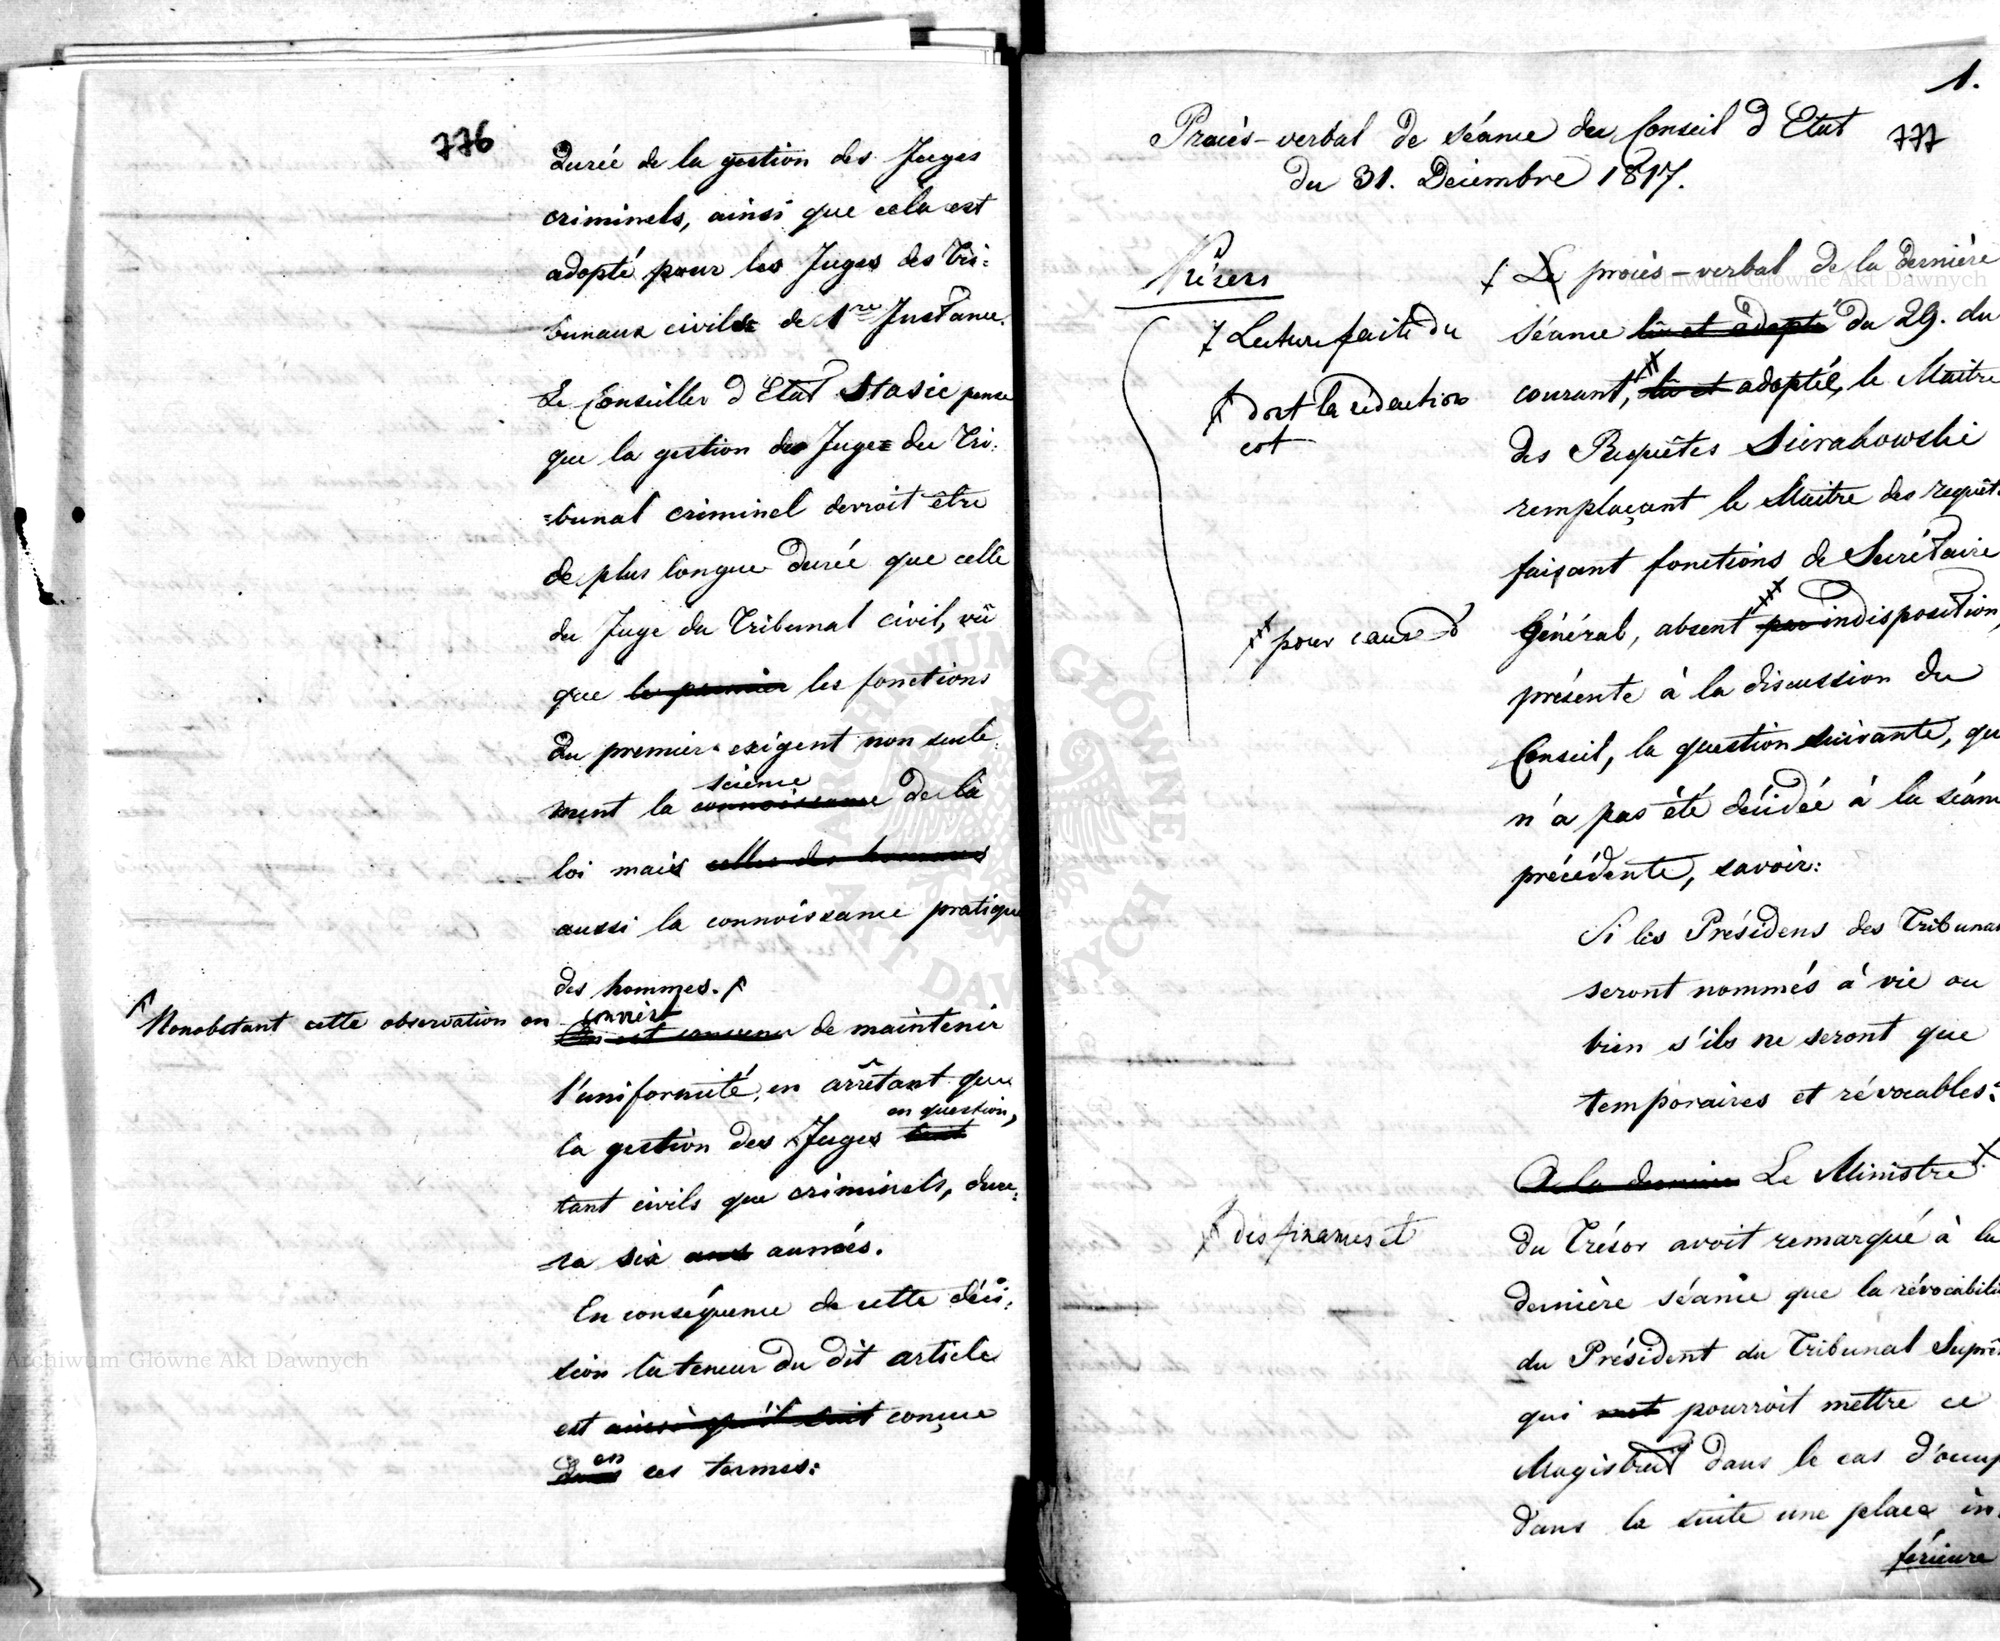 776
durée de la gestion des Juges
criminels, ainsi que cela est
adopté pour les Juges des Tri=
bunaux civils de 1re Instance.
Le Conseiller d'Etat Stasic pense
que la gestion du Juge du Tri:
=bunal criminel devroit être
de plus longue durée que celle
du Juge du Tribunal civil, vû
que le premier les fonctions
du premier exigent non seule
science
ment la connoissance de la
loi mais celles des hommes
aussi la connoissance pratique
des hommes.
Nonobstant cette observation on convient
On est convenu de maintenir
l'uniformité, en arrêtant que
en question,
la gestion des Juges tant
tant civils que criminels, dure:
ra six ans années.
En conséquence de cette déci:
sion la teneur du dit article
est ainsi qu'il suit conçue
en
dans ces termes:
1.
777
Procès-verbal de séance du Conseil d'Etat
du 31. Décembre 1817.
Lecture faite du
Le procès-verbal de la dernière
séance lû et adopté du 29. du
dont la rédaction
est
courant, lû et adoptée, le Maitre
des Requêtes Sierakowski
remplaçant le Maitre des requêt.
faisant fonctions de Secrétaire
pour cause d'
Général, absent par indisposition,
présente à la discussion du
Conseil, la question suivante, qu
n'a pas été décidée à la séan
précédente, savoir:
Si les Présidens des Tribunau
seront nommés à vie ou
bien s'ils ne seront que
temporaires et révocables:
A la dernière Le Ministre
des finances et
du Trésor avoit remarqué à la
dernière séance que la révocabili
du Président du Tribunal Suprê
qui met pourroit mettre ce
Magistrat dans le cas d'occup
dans la suite une place in.
férieure
Archiwum Główne Akt Dawnych
Archiwum Główne Akt Dawnych
ARCHIWUM GŁÓWNE AKT DAWNYCH